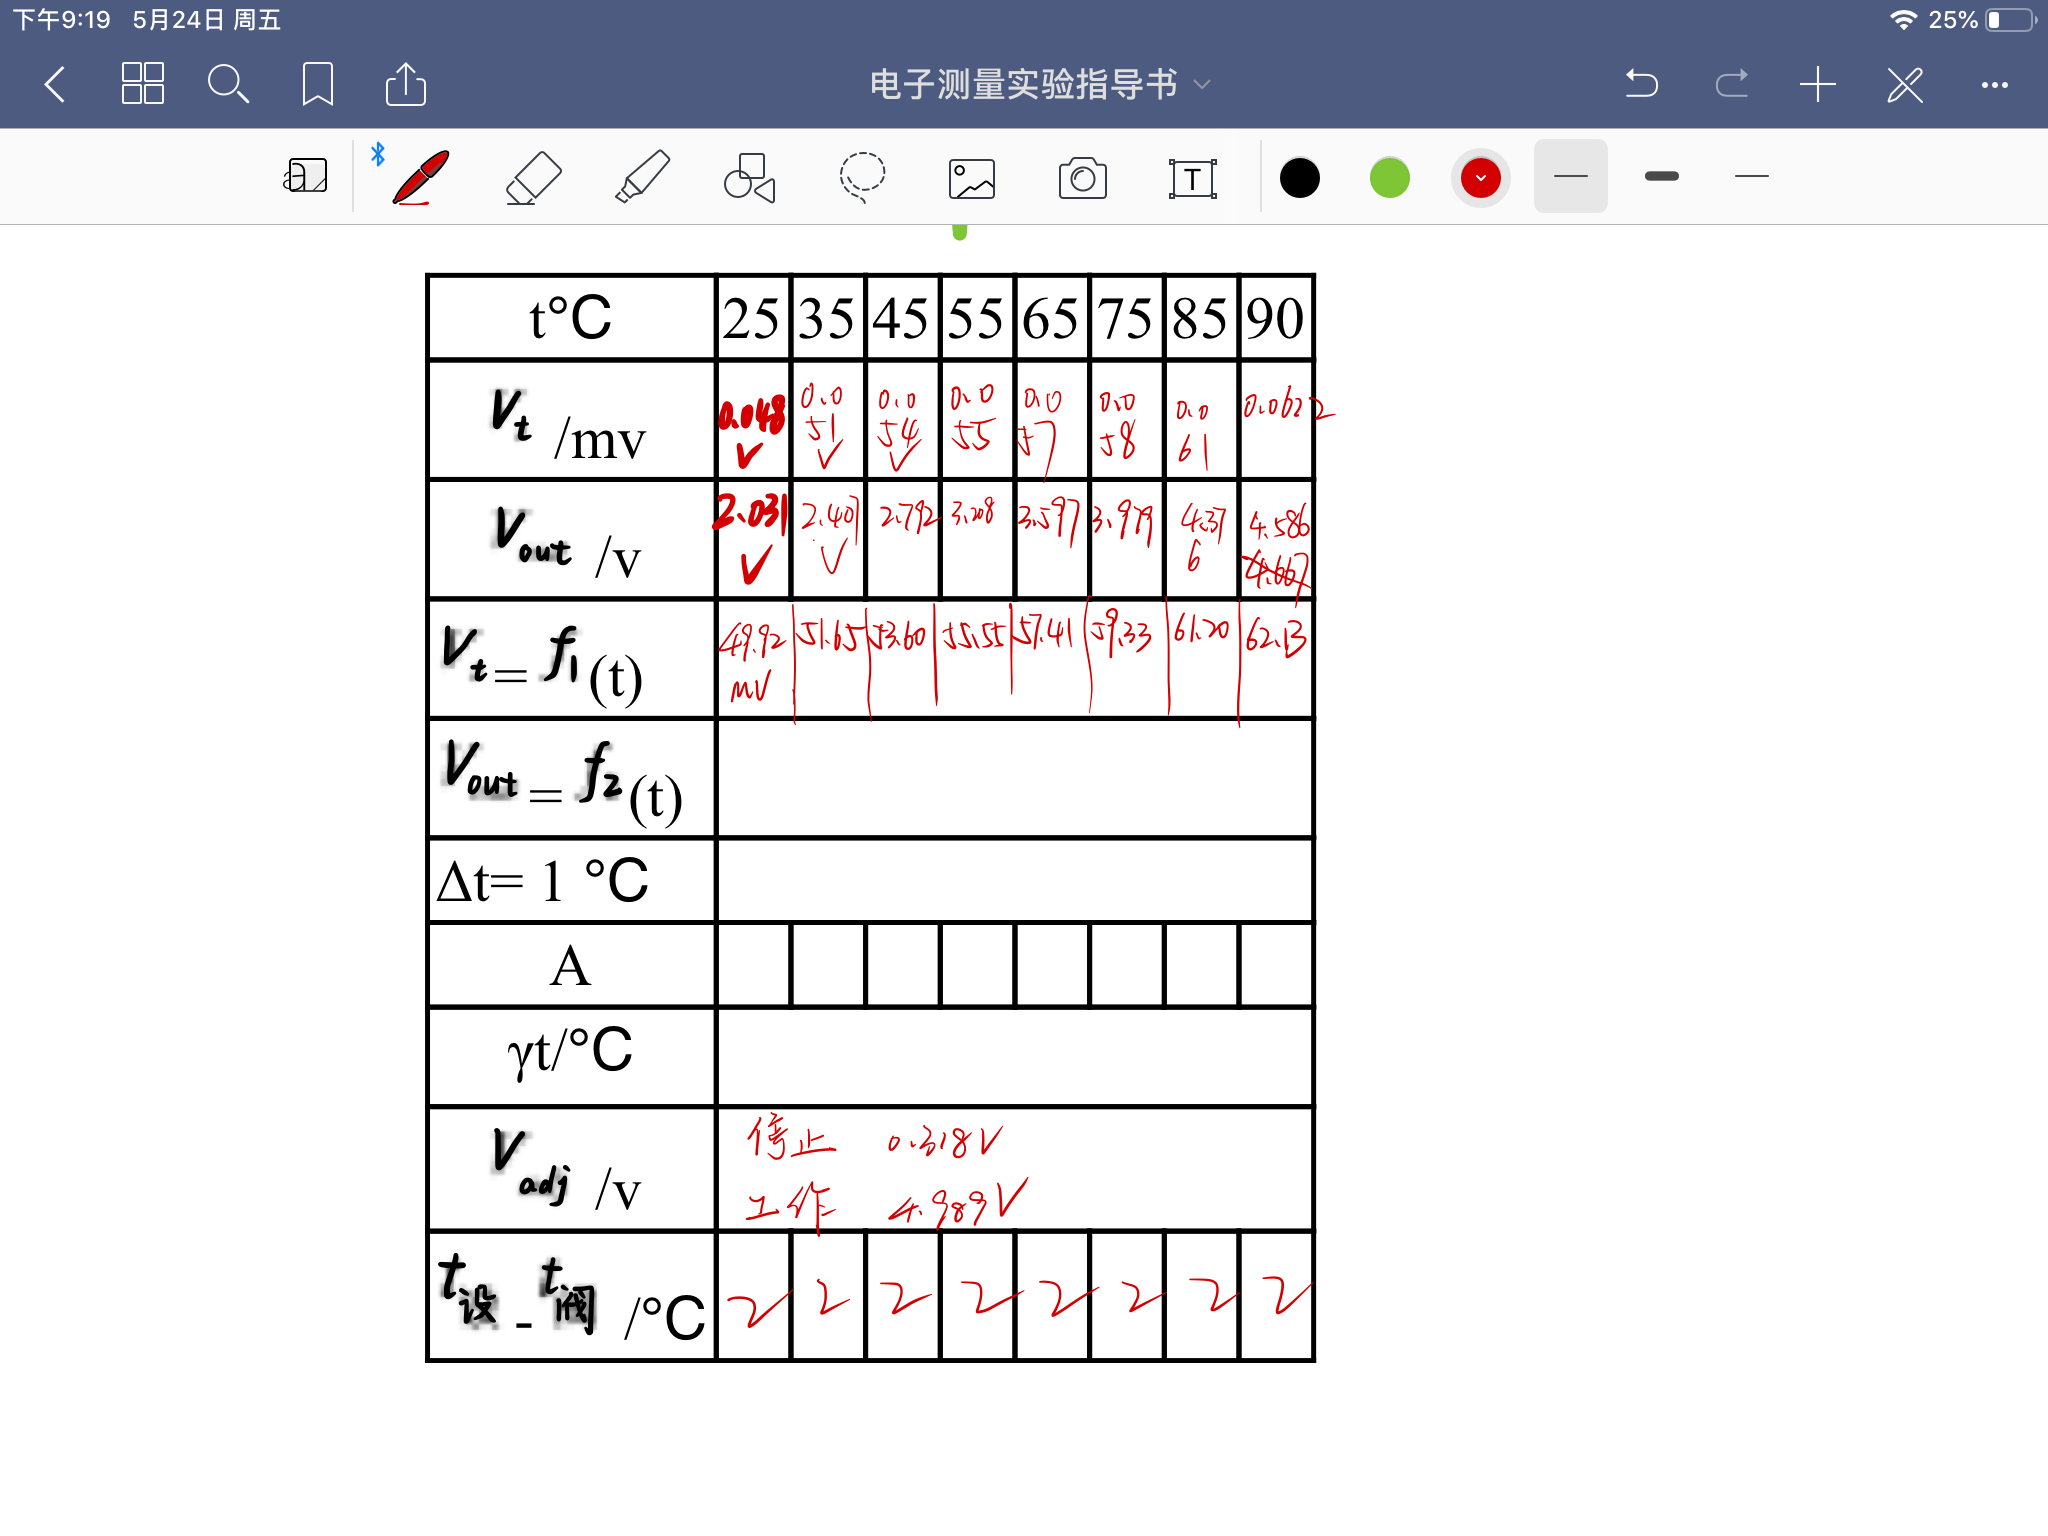 下午9:19 5月24日 周五 25%
电子测量实验指导书
a T
t°C 25 35 45 55 65 75 85 90
Vt /mv 0.048 V 0.051 V 0.054 V 0.055 0.057 0.058 0.061 0.0622
Vout /v 2.031 V 2.407 V 2.792 3.208 3.597 3.979 4.376 4.586 4.667
Vt = f1 (t) 49.92 mV 51.65 53.60 55.55 57.41 59.33 61.20 62.13
Vout = f2 (t)
Δt= 1 °C
A
γt/°C
Vadj /v 停止 0.318V
工作 4.989V
t设 - t阀 /°C 2 2 2 2 2 2 2 2